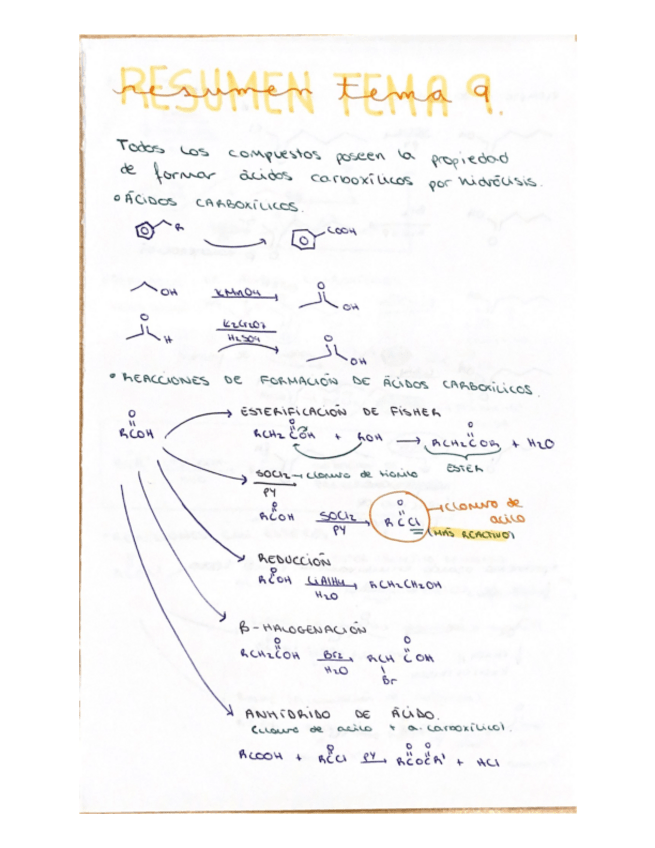 RESUMEN TEMA 9.
resumen tema 9.
Todos los compuestos poseen la propiedad
de formar ácidos carboxílicos por hidrólisis.
° ÁCIDOS CARBOXÍLICOS.
R
COOH
OH KMnO4 O OH
O H K2Cr2O7 H2SO4 O OH
° REACCIONES DE FORMACIÓN DE ÁCIDOS CARBOXÍLICOS.
ESTERIFICACIÓN DE FISHER
O
RCOH
O
RCH2COH + ROH → RCH2COR + H2O
ESTER
SOCl2 → cloruro de tionilo
PY
O
RCOH SOCl2 PY RCCl
→ cloruro de
ácido
(MÁS REACTIVO)
REDUCCIÓN
O
RCOH LiAlH4 H2O RCH2CH2OH
β-HALOGENACIÓN
O
RCH2COH Br2 H2O RCH COH
Br
ANHÍDRIDO DE ÁCIDO.
(cloruro de ácido + a. carboxílico).
RCOOH + RCCl PY RCOCR' + HCl